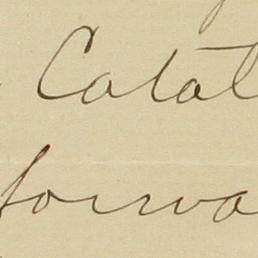 Catal
forwa